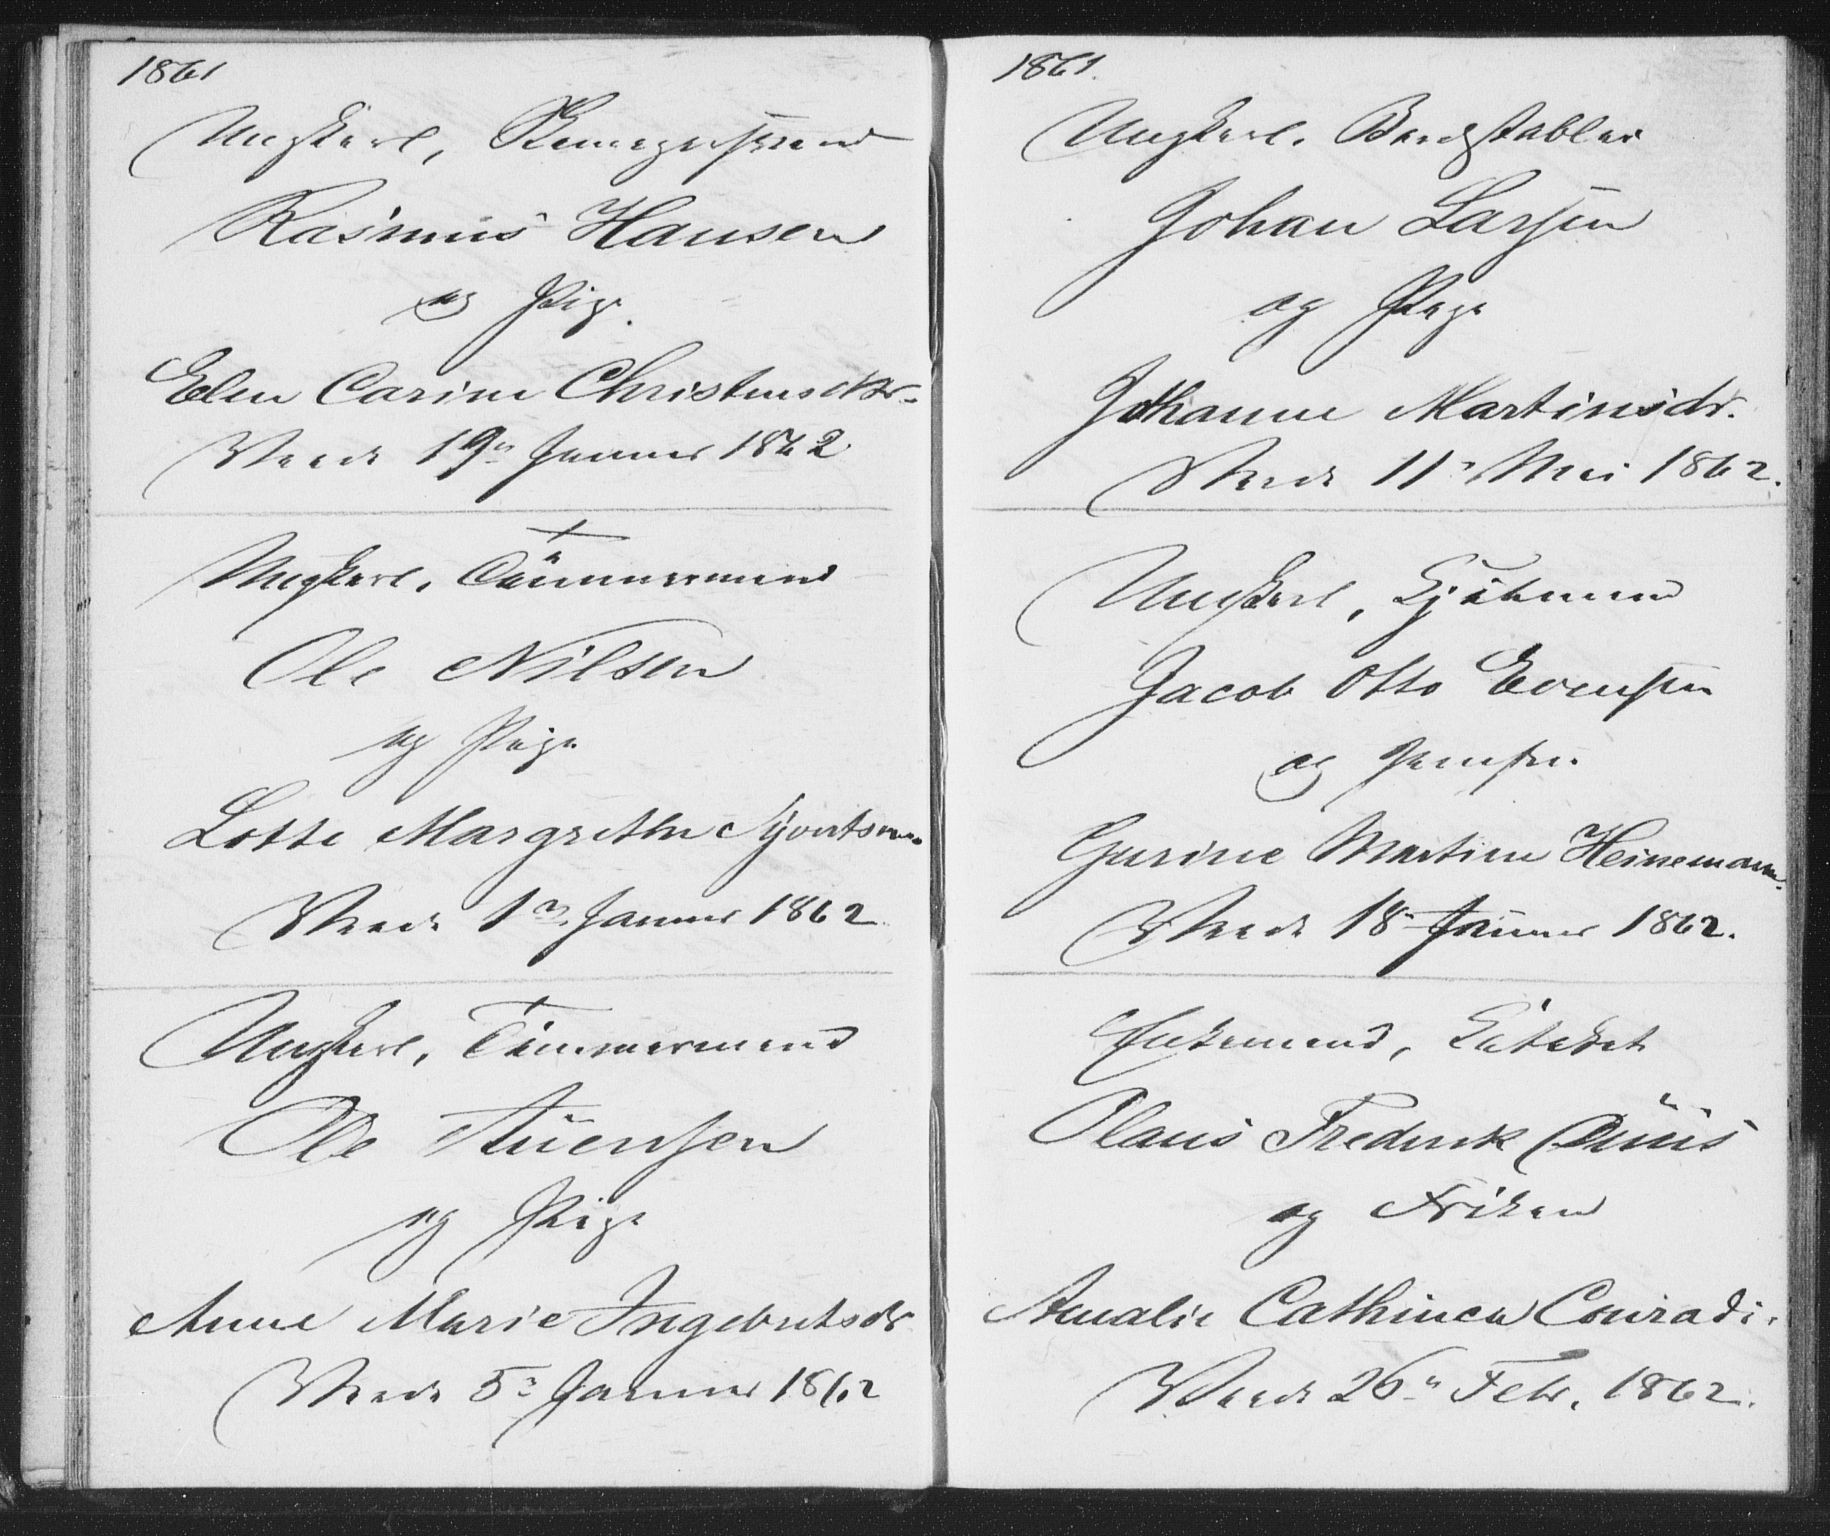 1861
Ungkarl,
Rasmus Hansen
og Pige
Elen Carine Christensdtr.
Viede 19de Januar 1862
Ungkarl, Tömmermand
Ole Nilsen
og Pige
Lotte Margrethe
Viede 1ste Januar 1862
Ungkarl, Tömmermand
Ole Auensen
og Pige
Anne Marie Ingebretsdr
Viede 5te Januar 1862
1861.
Ungkarl. Bordstabler
Johan Larsen
og Pige
Johanne Martinsdr.
Viede 11te Mai 1862.
Ungkarl, Sjömand
Jacob Otto Evensen
og Jomfru
Gurine Martine Heinemann.
Viede 18de Januar 1862.
Enkemand,
Olaus Frederik Duus
og Fröken
Amalie Cathinca Conradi.
Viede 26de Febr. 1862.